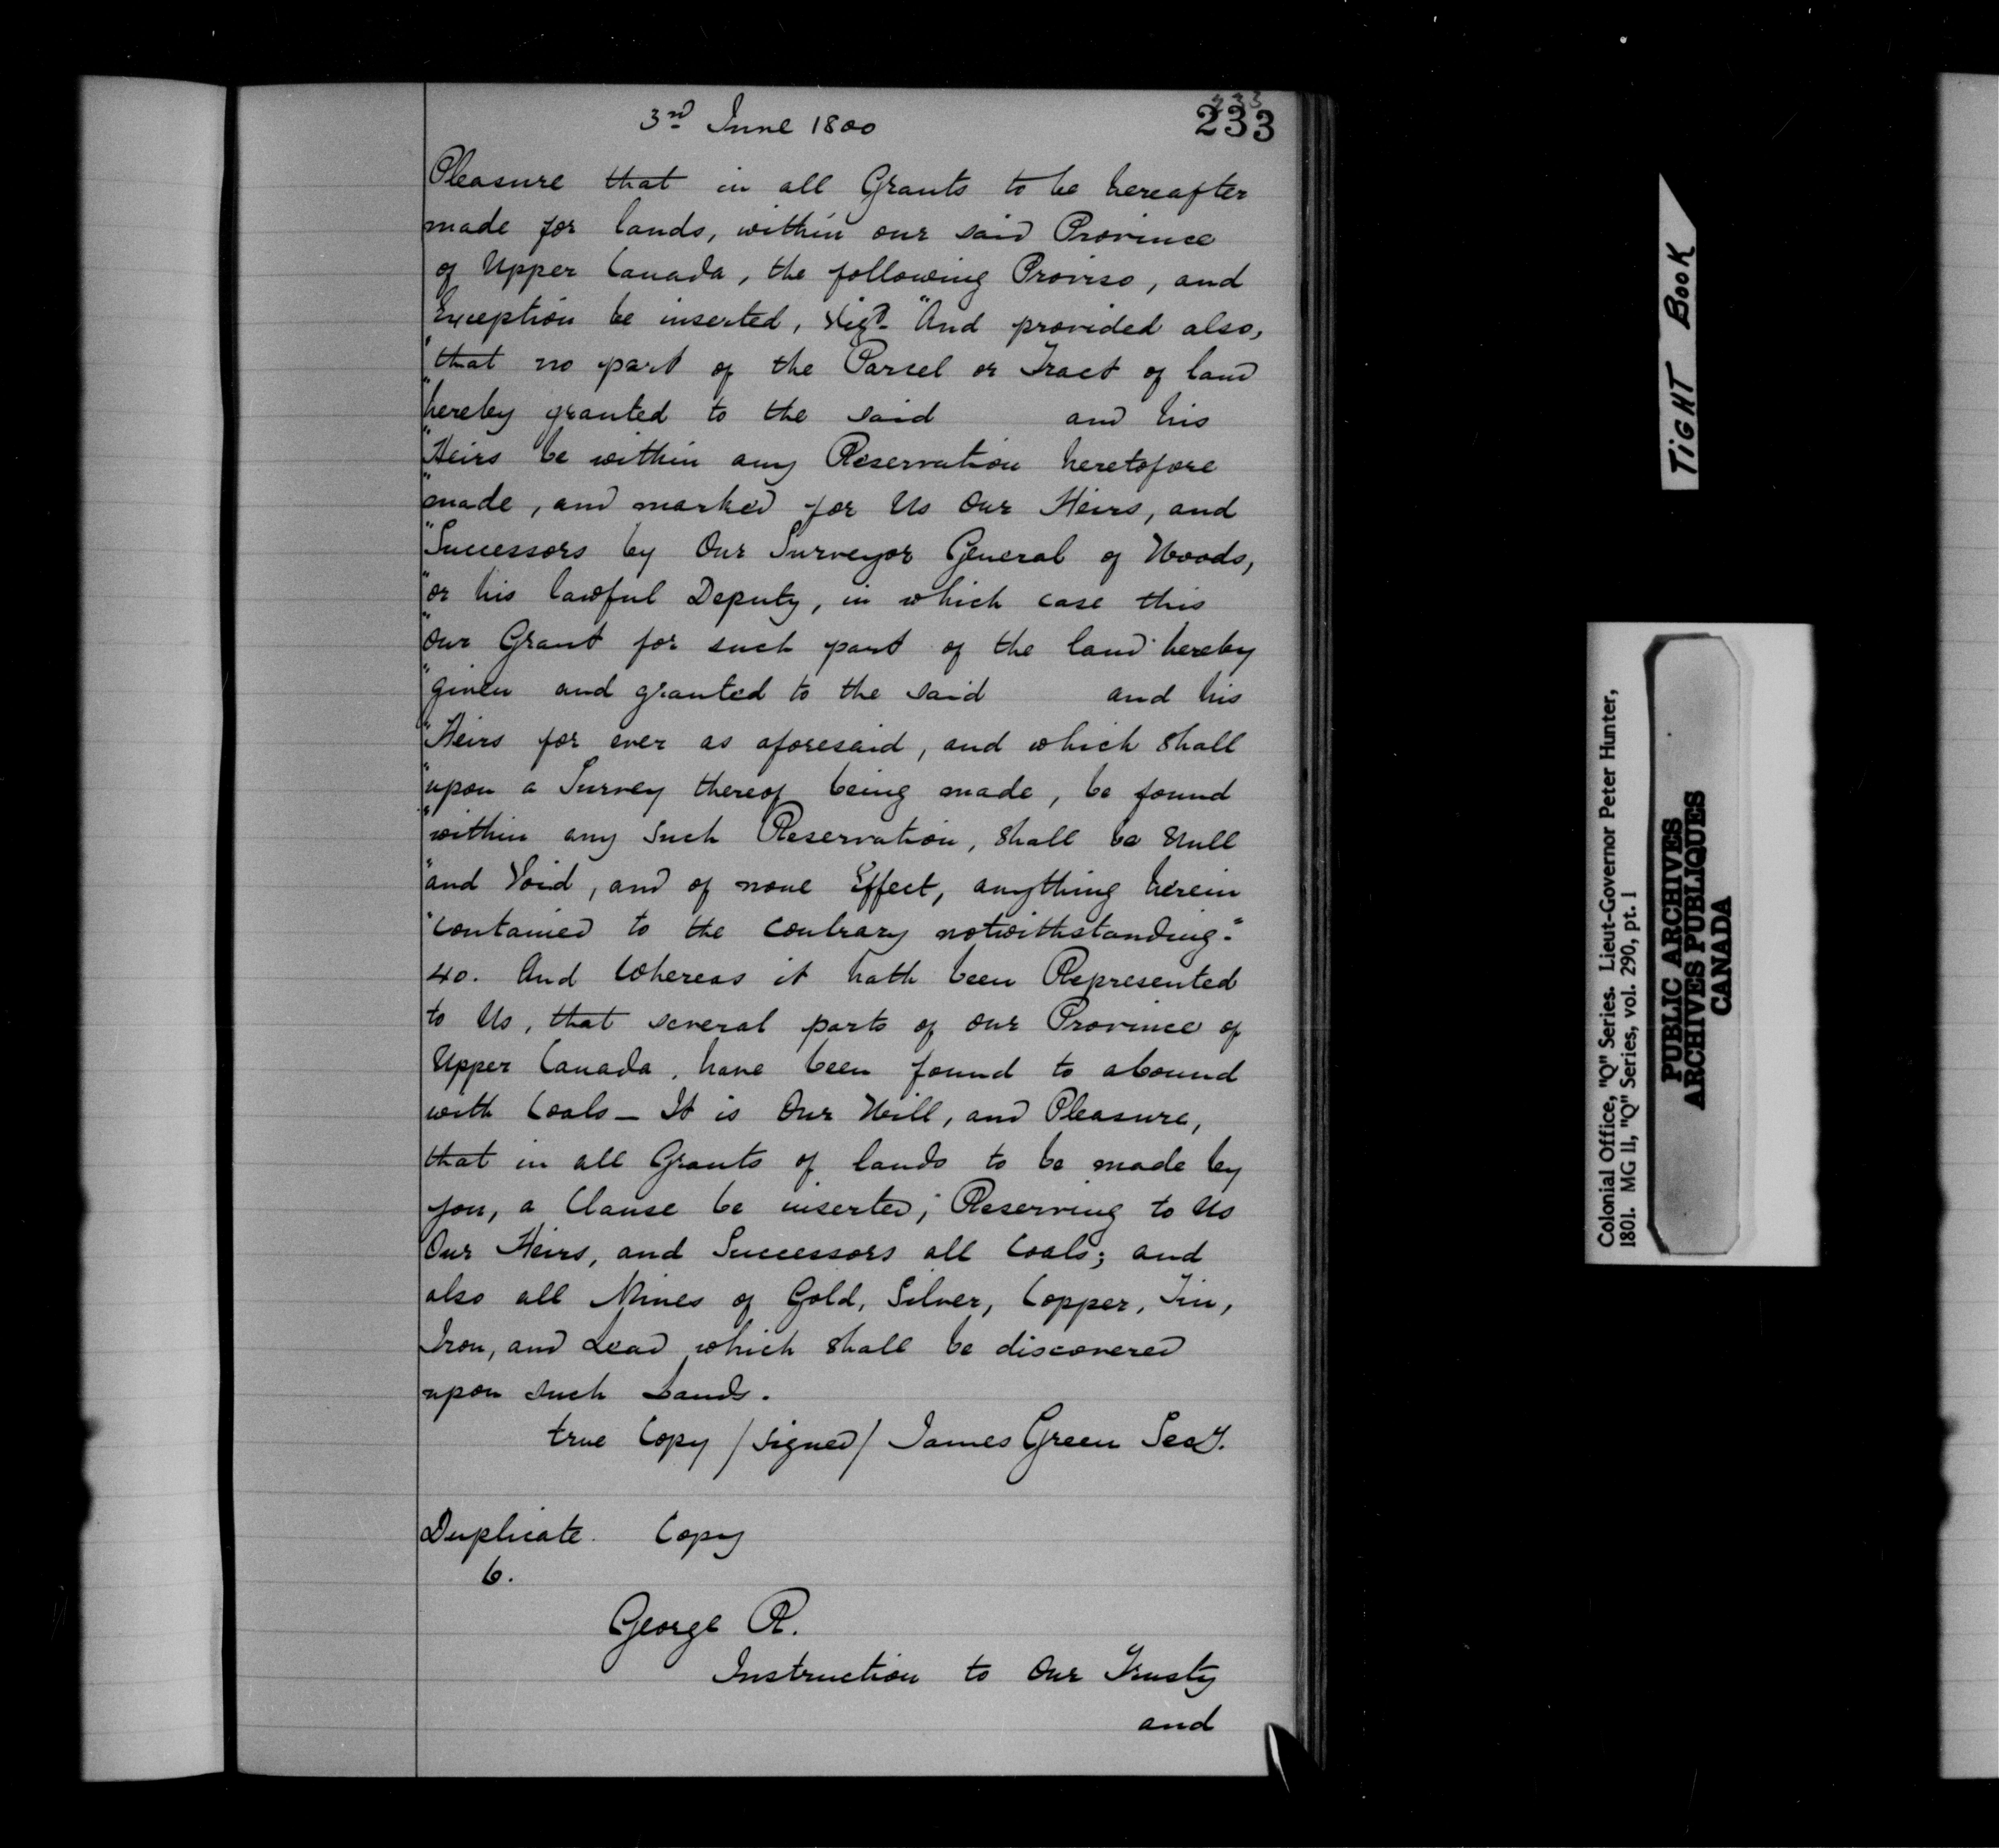 3rd June 1800
233
233
Pleasure that in all Grants to be hereafter
made for lands, within our said Province
of Upper Canada, the following Proviso, and
Exception be inserted, Vizt "And provided also,
"that no part of the Parcel or Tract of land
"hereby granted to the said and his
"Heirs be within any Reservation heretofore
"made, and marked for Us Our Heirs, and
"Successors by Our Surveyor General of Woods,
"or his lawful Deputy, in which case this
"Our Grant for such part of the land hereby
"given and granted to the said and his
"Heirs for ever as aforesaid, and which shall
"upon a Survey thereof being made, be found
"within any such Reservation, shall be Null
"and Void, and of none Effect, anything herein
"contained to the contrary notwithstanding."
40. And Whereas it hath been Represented
to Us, that several parts of our Province of
Upper Canada, have been found to abound
with Coals - It is Our Will, and Pleasure,
that in all Grants of lands to be made by
you, a Clause be inserted; Reserving to Us
Our Heirs, and Successors all Coals; and
also all Mines of Gold, Silver, Copper, Tin,
Iron, and Lead which shall be discovered
upon such Lands.
true Copy /signed/ James Green Secy.
Duplicate. Copy
6.
George R.
Instruction to Our Trusty
and
TIGHT BOOK
Colonial Office, "Q" Series. Lieut-Governor Peter Hunter,
1801. MG 11, "Q" Series, vol. 290, pt. 1
PUBLIC ARCHIVES
ARCHIVES PUBLIQUES
CANADA